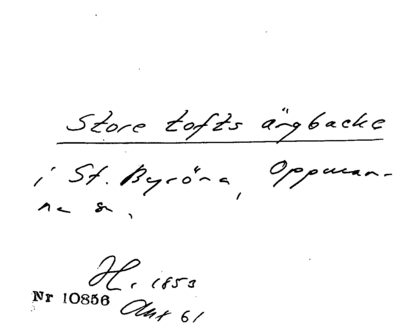 Store tofts ängbacke
i St. Byröna, Oppman-
na sn.
H. 1853
Nr 10856
Akt 61